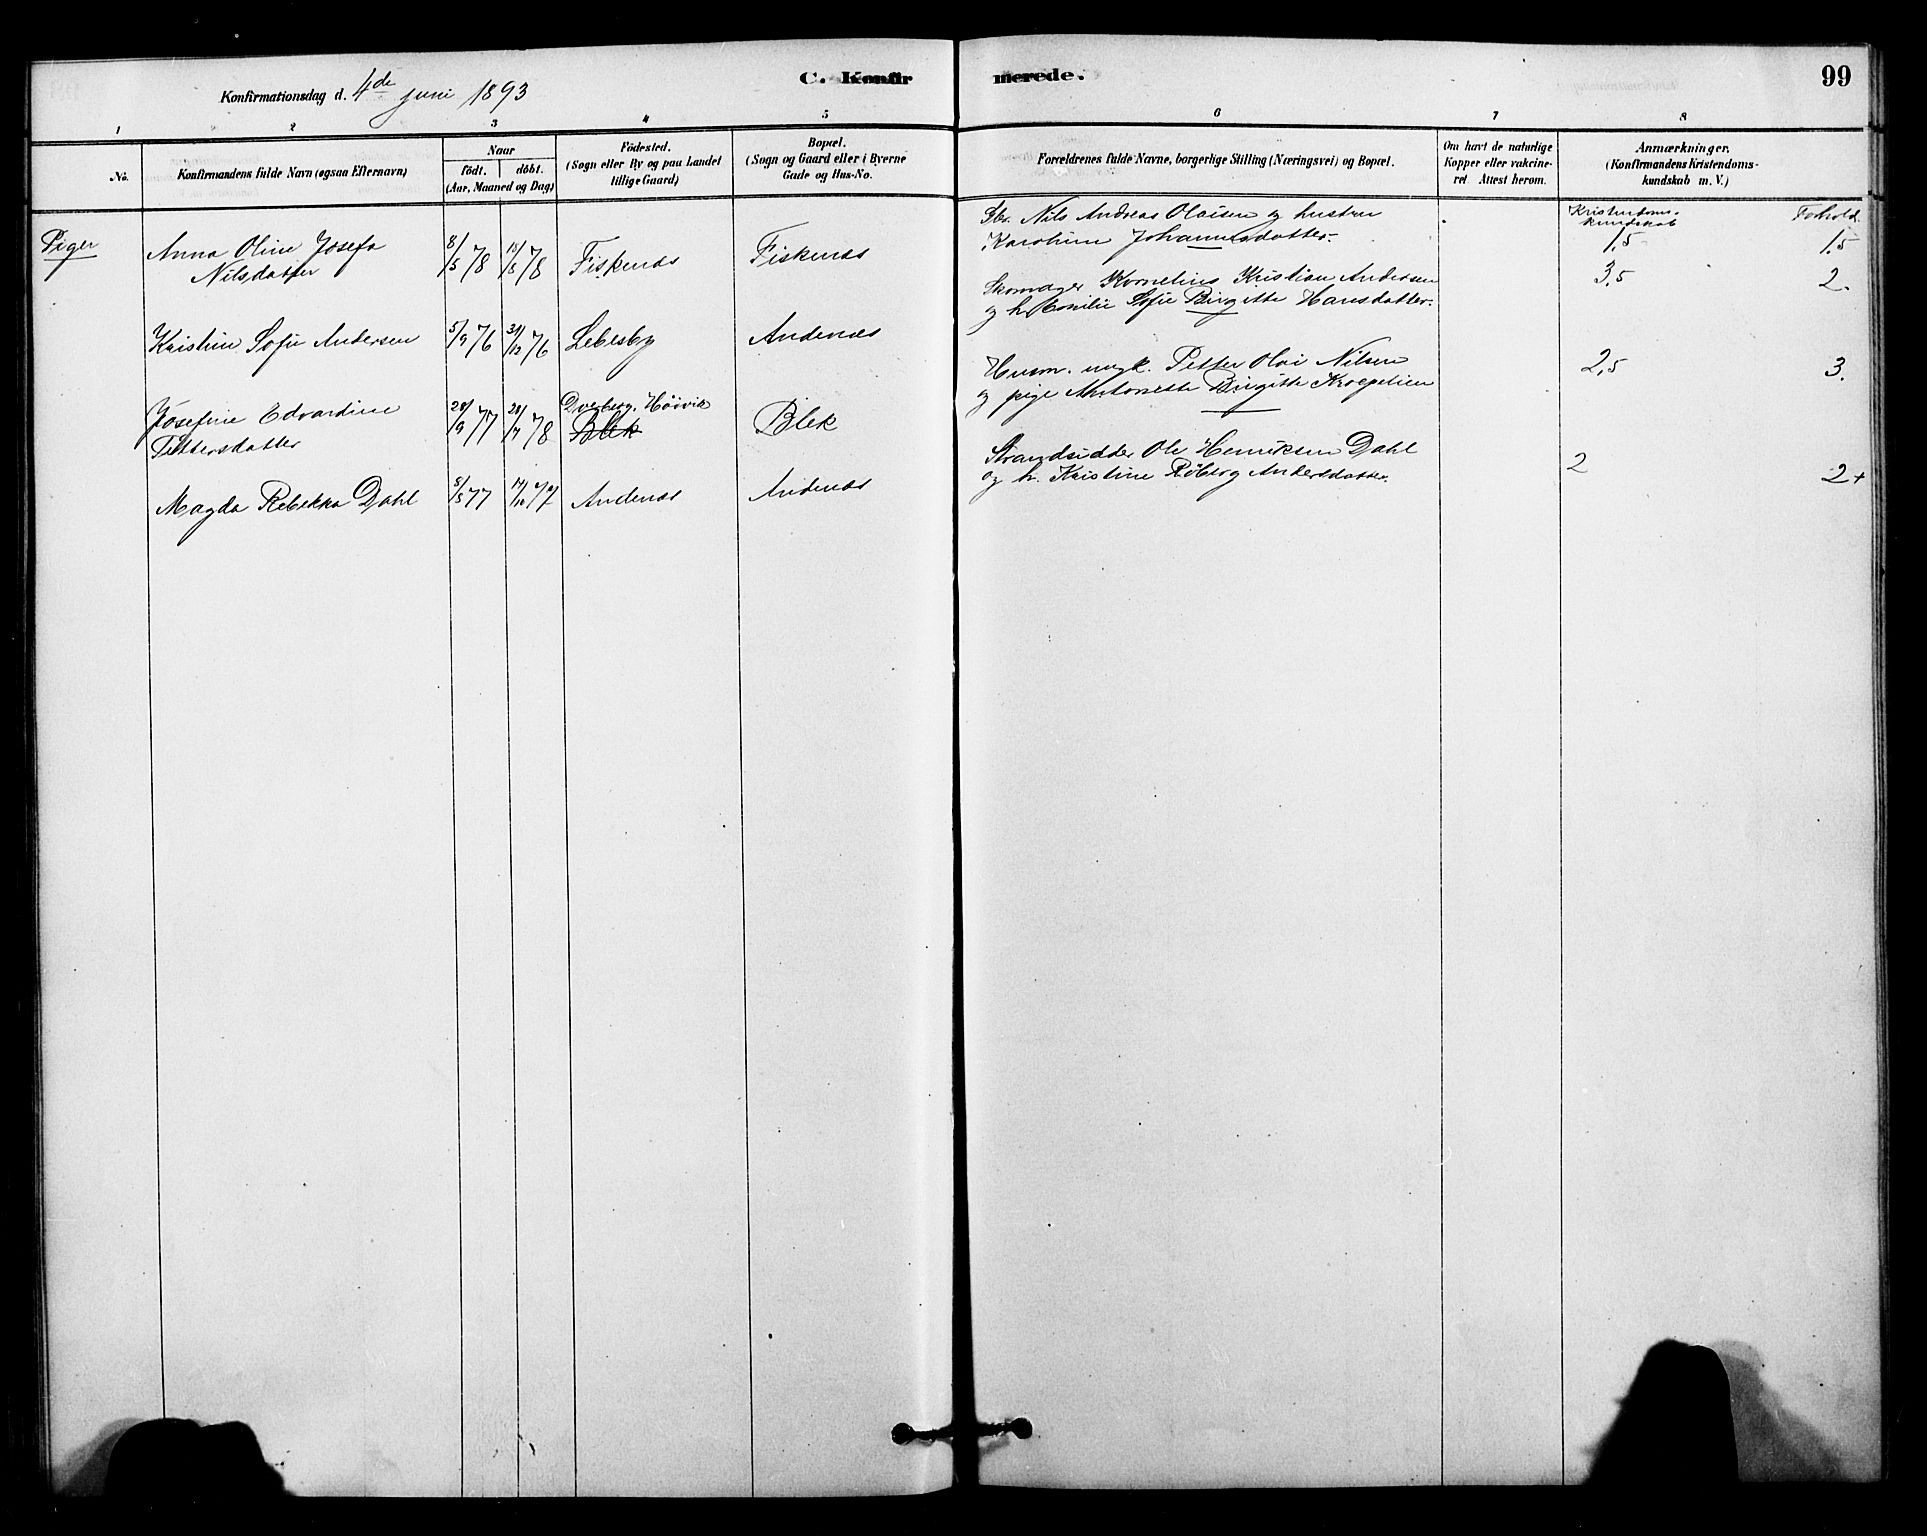 C. Konfirmerede.
99
Konfirmationsdag d. 4de juni 1893
1 2 3 4 5 6 7 8
No.
Konfirmandens fulde Navn (ogsaa Efternavn)
Naar
födt. döbt.
(Aar, Maaned og Dag)
Födested.
(Sogn eller By og paa Landet
tillige Gaard)
Bopæl.
(Sogn og Gaard eller i Byerne
Gade og Hus-No.
Forældrenes fulde Navne, borgerlige Stilling (Næringsvei) og Bopæl.
Om havt de naturlige
Kopper eller vakcine-
ret Attest herom.
Anmærkninger.
(Konfirmandens Kristendoms-
kundskab m. V.)
Kristendoms-
kundskab
Forhold
Piger
Anna Oline Josefa
Nilsdatter
8/5 78 /5 78 Fiskenæs Fiskenæs
Nils Andreas Olaisen og hustru
Karoline Johannesdatter.
1,5 1,5
Kristine Sofie Andersen 5/9 76 31/12 76 Lebesby Andenæs
Skomager Kornelius Kristian Andersen
og h. Emilie Sofie Birgitte Hansdatter.
3,5 2.
Josefine Edvardine
Pettersdatter
28/9 77 28/7 78
Dverberg, Höivik
Blek
Blek
Husm. ungk. Petter Olai Nilsen
og pige Antonette Birgitte Kroepelien
2,5 3.
Magda Rebekka Dahl 5/5 77 14/10 77 Andenæs Andenæs
Strandsidder Ole Henriksen Dahl
og h. Kristine Röberg Andersdatter.
2 2+